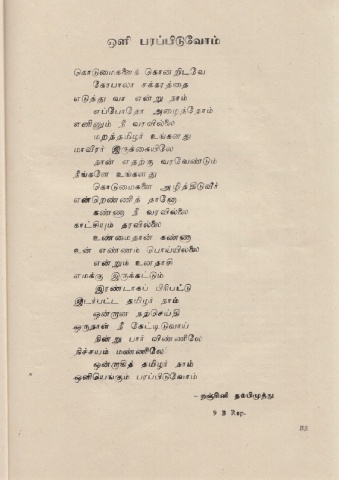 ஒளி பரப்பிடுவோம்
கொடுமைகளைக் கொன்றிடவே
கோபாலா சக்கரத்தை
எடுத்து வா என்று நாம்
எப்போதோ அழைத்தோம்
எனினும் நீ வரவில்லை
மறத்தமிழர் உங்களது
மாவீரர் இருக்கையிலே
நான் எதற்கு வரவேண்டும்
நீங்களே உங்களது
கொடுமைகளை அழித்திடுவீர்
என்றெண்ணித் தானோ
கண்ணா நீ வரவில்லை
காட்சியும் தரவில்லை
உண்மைதான் கண்ணா
உன் எண்ணம் பொய்யில்லை
என்றும் உனதாசி
எமக்கு இருக்கட்டும்
இரண்டாகப் பிரிபட்டு
இடர்பட்ட தமிழர் நாம்
ஒன்றான நற்செய்தி
ஒருநாள் நீ கேட்டிடுவாய்
நின்று பார் விண்ணிலே
நிச்சயம் மண்ணிலே
ஒன்றாகித் தமிழர் நாம்
ஒளியெங்கும் பரப்பிடுவோம்
– றஞ்சினி தகபிமுத்து
9 B